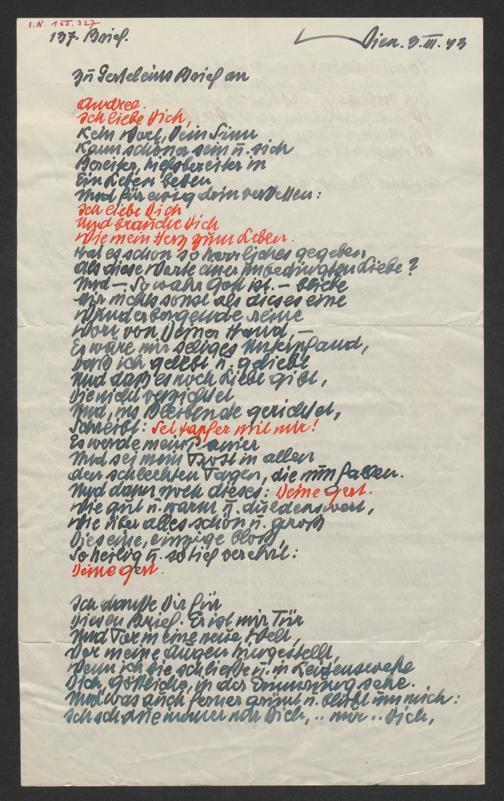 I.N. 155.327
137. Brief. Wien. 3. III. 43
Zu Gerteleins Brief an
Andree.
Ich liebe Dich,
Kein Wort, Dein Sinn
Kann schöner sein u. sich
Bereiter, hilfsbereiter in
Ein Leben beben
Und für ewig drin verketten:
Ich liebe Dich
Und brauche Dich
Wie mein Herz zum Leben.
Hat es schon so herrliches gegeben
Als diese Worte einer unbedingten Liebe?
Und — So wahr Gott ist. — bliebe
Mir nichts sonst als dieses eine
Wunderbergende reine
Wort von Deiner Hand, —
Es wäre mir seliges Unterpfand,
Dass ich gelebt u. geliebt
Und dass es noch Liebe gibt,
Die nicht verzichtet
Und, ins Bleibende gerichtet,
Schreibt: Sei tapfer mit mir!
Es werde mein
Und sei mein Trost in allen
den schlechten Tagen, die nun fallen.
Und dann noch dieses: Deine Gert.
Wie gut u. warm u. duldenswert,
Wie über alles schön u. gross
Dies eine, einzige bloss,
So heilig u. so tief verehrt:
Deine Gert.
Ich danke Dir für
Diesen Brief. Er ist mir Tür
Und Tor in eine neue Welt,
Vor meine Augen hingestellt,
Wenn ich sie schließe u. in
Dich, Göttliche, in der Erinnerung sehe.
Und was auch ferner u. bleibt um mich:
Ich schaue immer nur Dich, .. nur .. Dich,